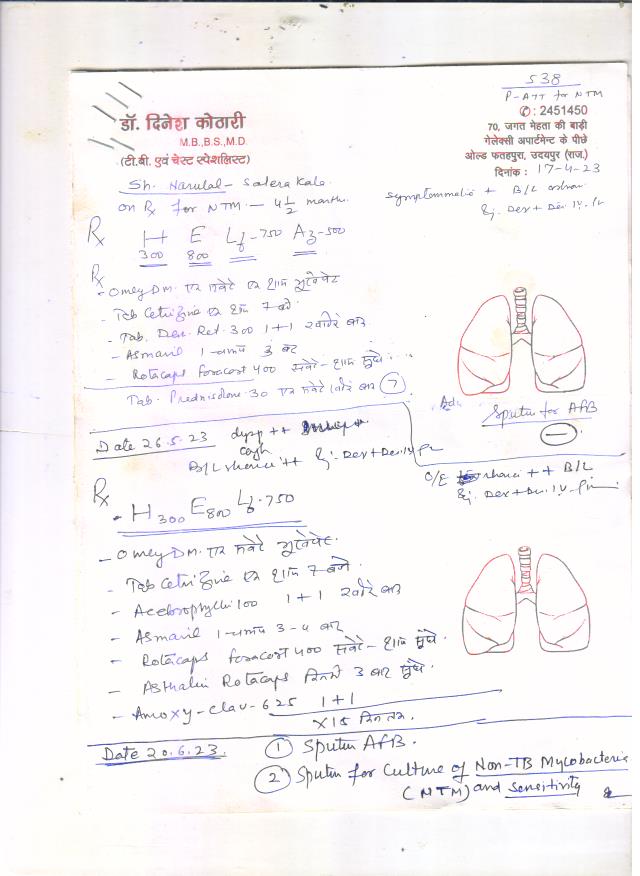 538
P-ATT for NTM
✆: 2451450
70, जगत मेहता की बाड़ी
गेलेक्सी अपार्टमेन्ट के पीछे
ओल्ड फतहपुरा, उदयपुर (राज.)
दिनांक : 17-4-23
डॉ. दिनेश कोठारी
M.B.,B.S.,M.D.
(टी.बी. एवं चेस्ट स्पेशलिस्ट)
Sh. Narulal - Salera Kala
on Rx for NTM - 4½ months
+ B/L
Inj. Dex + Deri I.V.
Rx H 300 E 800 Lf-750 Az-500
Rx
- Omey Dm. एक सवेरे भूखे पेट
- Tab Cetrizine एक शाम 7 बजे
- Tab. Deri. Ret. 300 1+1 खाने के बाद
- Asmanil 1-चम्मच 3 बार
- Rotacaps foracort 400 सवेरे - शाम सूंघे
Tab. Prednisolone 30 एक सवेरे खाने के बाद 7
Adv.
Sputum for AFB
-
Date 26.5.23 dysp ++
cough
B/L rhonci ++ Inj. Dex + Deri I.V.
O/E rhonci ++ B/L
Inj. Dex + Deri I.V.
Rx
- H 300 E 800 Lf-750
- Omey Dm. एक सवेरे भूखे पेट
- Tab Cetrizine एक शाम 7 बजे
- Acebrophyllin 100 1+1 खाने के बाद
- Asmanil 1-चम्मच 3-4 बार
- Rotacaps foracort 400 सवेरे - शाम सूंघे
- Asthalin Rotacaps दिन में 3 बार सूंघे
- Amoxy-clav-625 1+1
×15 दिन तक
Date 20.6.23. ① Sputum AFB.
② Sputum for Culture of Non-TB Mycobacteria
(NTM) and Sensitivity